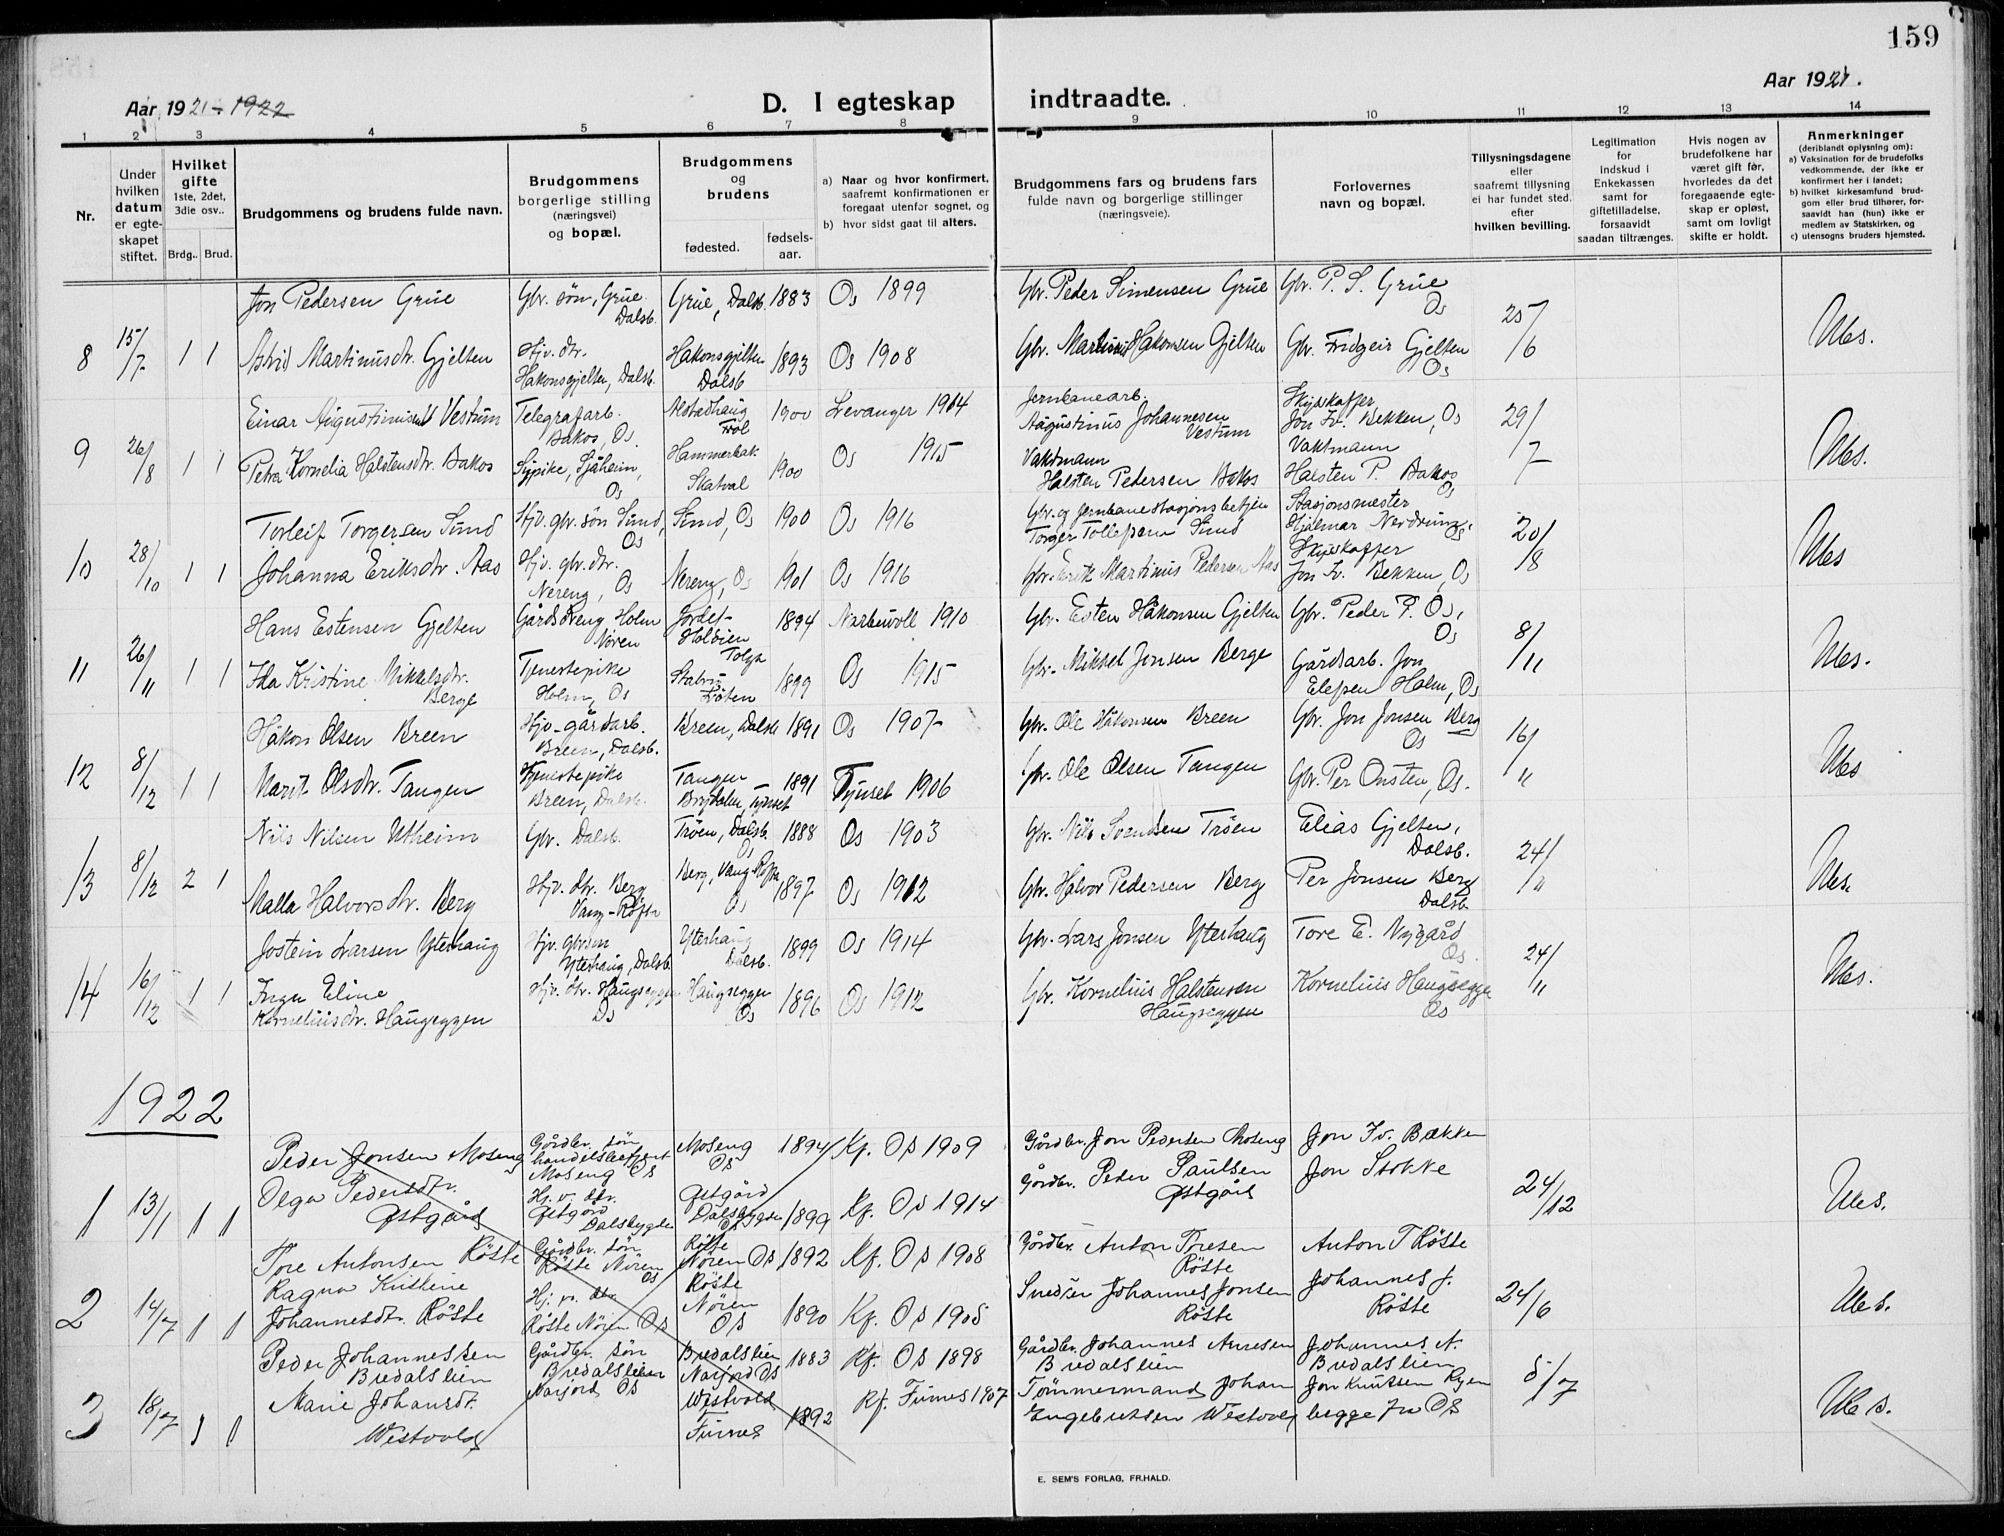 159
Aar 1921 - 1922
D. I egteskap indtraadte.
Aar 1921.
1 2 3 4 5 6 7 8 9 10 11 12 13 14
Nr.
Under hvilken datum er egteskapet stiftet.
Hvilket gifte 1ste, 2det, 3die osv..
Brdg.. Brud.
Brudgommens og brudens fulde navn.
Brudgommens borgerlige stilling (næringsvei) og bopæl.
Brudgommens og brudens
fødested.
fødsels-aar.
a) Naar og hvor konfirmert, saafremt konfirmationen er foregaat utenfor sognet, og
b) hvor sidst gaat til alters.
Brudgommens fars og brudens fars fulde navn og borgerlige stillinger (næringsveie).
Forlovernes navn og bopæl.
Tillysningsdagene eller saafremt tillysning ei har fundet sted, efter hvilken bevilling.
Legitimation for indskud i Enkekassen samt for giftetilladelse, forsaavidt saadan tiltrænges.
Hvis nogen av brudefolkene har været gift før, hvorledes da det foregaaende egteskap er opløst, samt om lovligt skifte er holdt.
Anmerkninger (deriblandt oplysning om):
a) Vaksination for de brudefolks vedkommende, der ikke er konfirmert her i landet;
b) hvilket kirkesamfund brudgom eller brud tilhører, forsaavidt han (hun) ikke er medlem av Statskirken, og
c) utensogns bruders hjemsted.
Jon Pedersen Grue Gbr. søn, Grue Dalsb. Grue, Dalsb. 1883 Os 1899 Gbr. Peder Simensen Grue Gbr. P. S. Grue Os
8 15/7 1 1 Astrid Martinusdtr. Gjelten Hjv. dtr. Hakonsgjelten, Dalsb. Hakonsgjelten Dalsb 1893 Os 1908 Gbr. Martinus Hakonsen Gjelten Gbr. Fridgeir Gjelten Os 25/6
Einar Augustinusen Vestum Telegrafarb. Bakos, Os. Alstadhaug 1900 Levanger 1914 Jernbanearb. Augustinus Johannesen Vestum Skydskaffer Jon Iv. Bekken, Os
9 26/8 1 1 Petra Kornelia Halstensdtr. Bakos Sypike, Sjåheim, Os Skatval 1900 Os 1915 Vaktmann Halsten Pedersen Bakos Vaktmann Halsten P. Bakos Os 29/7
Torleif Torgersen Sund Hjv. gbr. søn Sund, Os Sund, Os 1900 Os 1916 Gbr. og jernbanestasjonsbetjen Torger Tollefsen Sund Stasjonsmester Hjalmar Nordrum, Os
10 28/10 1 1 Johanna Eriksdtr. Aas Hjv. gbr. dtr. Nereng, Os Nereng, Os 1901 Os 1916 Gbr. Erik Martinus Pedersen Aas Skydskaffer Jon Iv. Bekken, Os 20/8
Hans Estensen Gjelten Gårdsdreng Holm Nøren Holøien Tolga 1894 Narbuvoll 1910 Gbr. Esten Håkonsen Gjelten Gbr. Peder P. Os, Os
11 26/11 1 1 Ida Kristine Mikkelsdtr. Berge Tjenestepike Holm, Os Løten 1899 Os 1915 Gbr. Mikkel Jonsen Berge Gårdsarb. Jon Elefsen Holm, Os 8/11
Håkon Olsen Breen Hjv. gårdarb. Breen, Dalsb. Breen, Dalsb 1891 Os 1907 Gbr. Ole Håkonsen Breen Gbr. Jon Jonsen Berg Os
12 8/12 1 1 Marit Olsdtr. Tangen Tjenestepike Breen, Dalsb. Tangen Brydalen, Tynset 1891 Tynset 1906 Gbr. Ole Olsen Tangen Gbr. Per Onsten, Os. 16/11
Nils Nilsen Utheim Gbr. Dalsb. Trøen, Dalsb. Os 1888 Os 1903 Gbr. Nils Svendsen Trøen Elias Gjelten, Dalsb.
13 8/12 2 1 Malla Halvorsdtr. Berg Hjv. dtr. Berg Vang-Røfsn Berg, Vang-Røfsn Os 1897 Os 1912 Gbr. Halvor Pedersen Berg Per Jonsen Berg Dalsb. 24/11
Jostein Larsen Yterhaug Hjv. gbrsøn Yterhaug, Dalsb. Yterhaug Dalsb. 1899 Os 1914 Gbr. Lars Jonsen Yterhaug Tore E. Nygård Os.
14 16/12 1 1 Inga Eline Korneliusdtr. Haugseggen Hjv. dtr. Haugseggen Os Haugseggen Os 1896 Os 1912 Gbr. Kornelius Halstensen Haugseggen Kornelius Haugseggen Os 24/11
1922
Peder Jonsen Moseng Gårdbr. søn handelsbetjent Moseng Os Moseng Os 1894 Kf. Os 1909 Gårdbr. Jon Pedersen Moseng Jon Iv. Bækken
1 13/1 1 1 Olga Pedersdtr. Østgård Hj. v. dtr. Østgård Dalsbygden Østgård Dalsbygden 1899 Kf. Os 1914 Gårdbr. Peder Paulsen Østgård Jon Stokke 24/12
Tore Antonsen Røste Gårdbr. søn Røste Nøren Os Røste Nøren Os 1892 Kf. Os 1908 Gårdbr. Anton Toresen Røste Anton T Røste
2 14/7 1 1 Ragna Kristine Johannesdtr. Røste Hj. v. dtr. Røste Nøren Os Røste Nøren Os 1890 Kf. Os 1905 Snedker Johannes Jonsen Røste Johannes J. Røste 24/6
Peder Johannessen Bredalslien Gårdbr. søn Bredalslien Narjord Os Bredalslien Narjord Os 1883 Kf. Os 1898 Gårdbr. Johannes Arnesen Bredalslien Johannes A. Bredalslien
3 18/7 1 1 Marie Johansdtr. Westvold Westvold Furnes 1892 Kf. Furnes 1907 Tømmermand Johan Engebretsen Westvold Jon Knutsen Ryen begge fra Os 5/7
E. SEM'S FORLAG, FR.HALD.